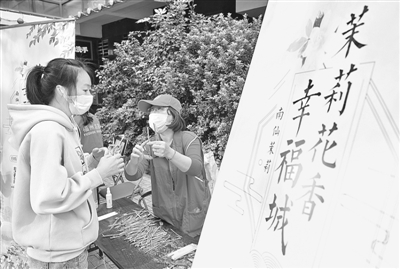 茉莉花香
幸福城
南仙茉莉